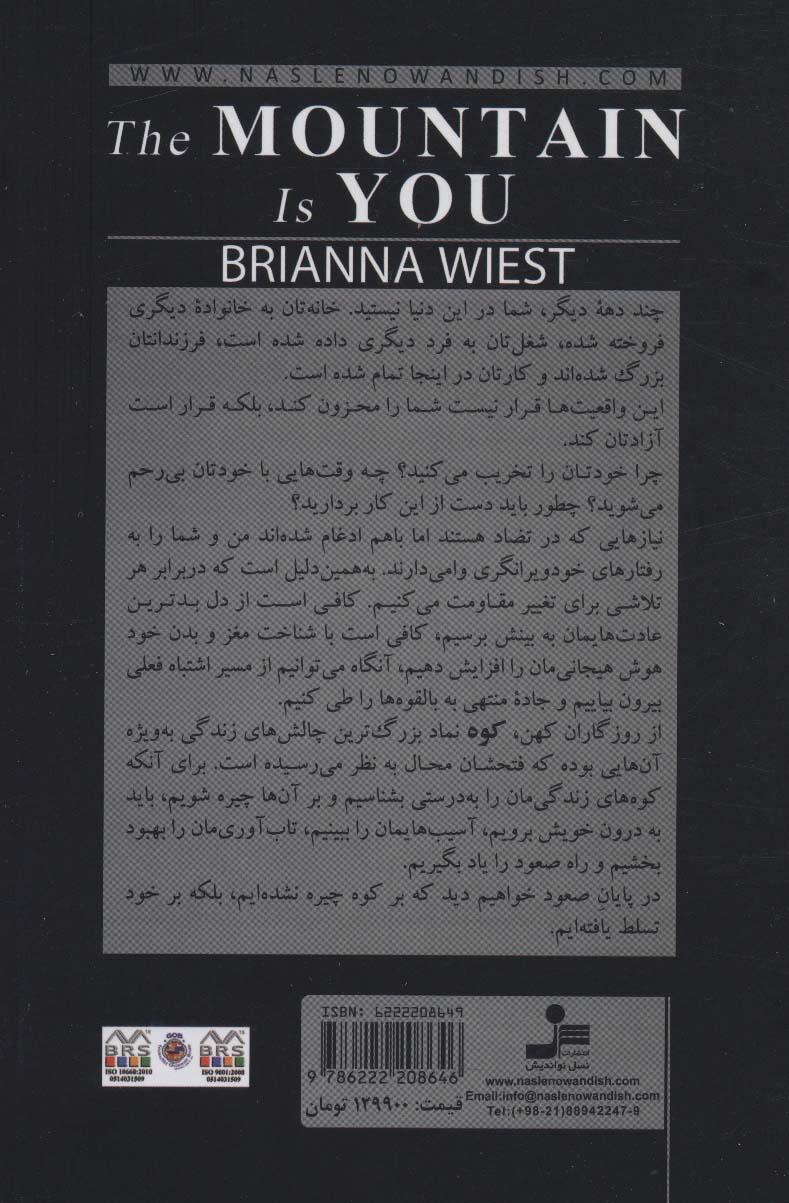 WWW.NASLENOWANDISH.COM
The MOUNTAIN
Is YOU
BRIANNA WIEST
چند دههٔ دیگر، شما در این دنیا نیستید. خانه‌تان به خانوادهٔ دیگری
فروخته شده، شغل‌تان به فرد دیگری داده شده است، فرزندانتان
بزرگ شده‌اند و کارتان در اینجا تمام شده است.
این واقعیت‌ها قرار نیست شما را محزون کند، بلکه قرار است
آزادتان کند.
چرا خودتان را تخریب می‌کنید؟ چه وقت‌هایی با خودتان بی‌رحم
می‌شوید؟ چطور باید دست از این کار بردارید؟
نیازهایی که در تضاد هستند اما باهم ادغام شده‌اند من و شما را به
رفتارهای خودویرانگری وامی‌دارند. به‌همین‌دلیل است که دربرابر هر
تلاشی برای تغییر مقاومت می‌کنیم. کافی است از دل بدترین
عادت‌هایمان به بینش برسیم، کافی است با شناخت مغز و بدن خود
هوش هیجانی‌مان را افزایش دهیم، آنگاه می‌توانیم از مسیر اشتباه فعلی
بیرون بیاییم و جادهٔ منتهی به بالقوه‌ها را طی کنیم.
از روزگاران کهن، کوه نماد بزرگ‌ترین چالش‌های زندگی به‌ویژه
آن‌هایی بوده که فتحشان محال به نظر می‌رسیده است. برای آنکه
کوه‌های زندگی‌مان را به‌درستی بشناسیم و بر آن‌ها چیره شویم، باید
به درون خویش برویم، آسیب‌هایمان را ببینیم، تاب‌آوری‌مان را بهبود
بخشیم و راه صعود را یاد بگیریم.
در پایان صعود خواهیم دید که بر کوه چیره نشده‌ایم، بلکه بر خود
تسلط یافته‌ایم.
BRS
ISO 10668:2010
0514031509
GOR
BRS
ISO 9001:2008
0514031509
ISBN: 6222208649
9 786222 208646
قیمت: ۱۲۹۹۰۰ تومان
انتشارات
نسل نواندیش
www.naslenowandish.com
Email:info@naslenowandish.com
Tel:(+98-21)88942247-9